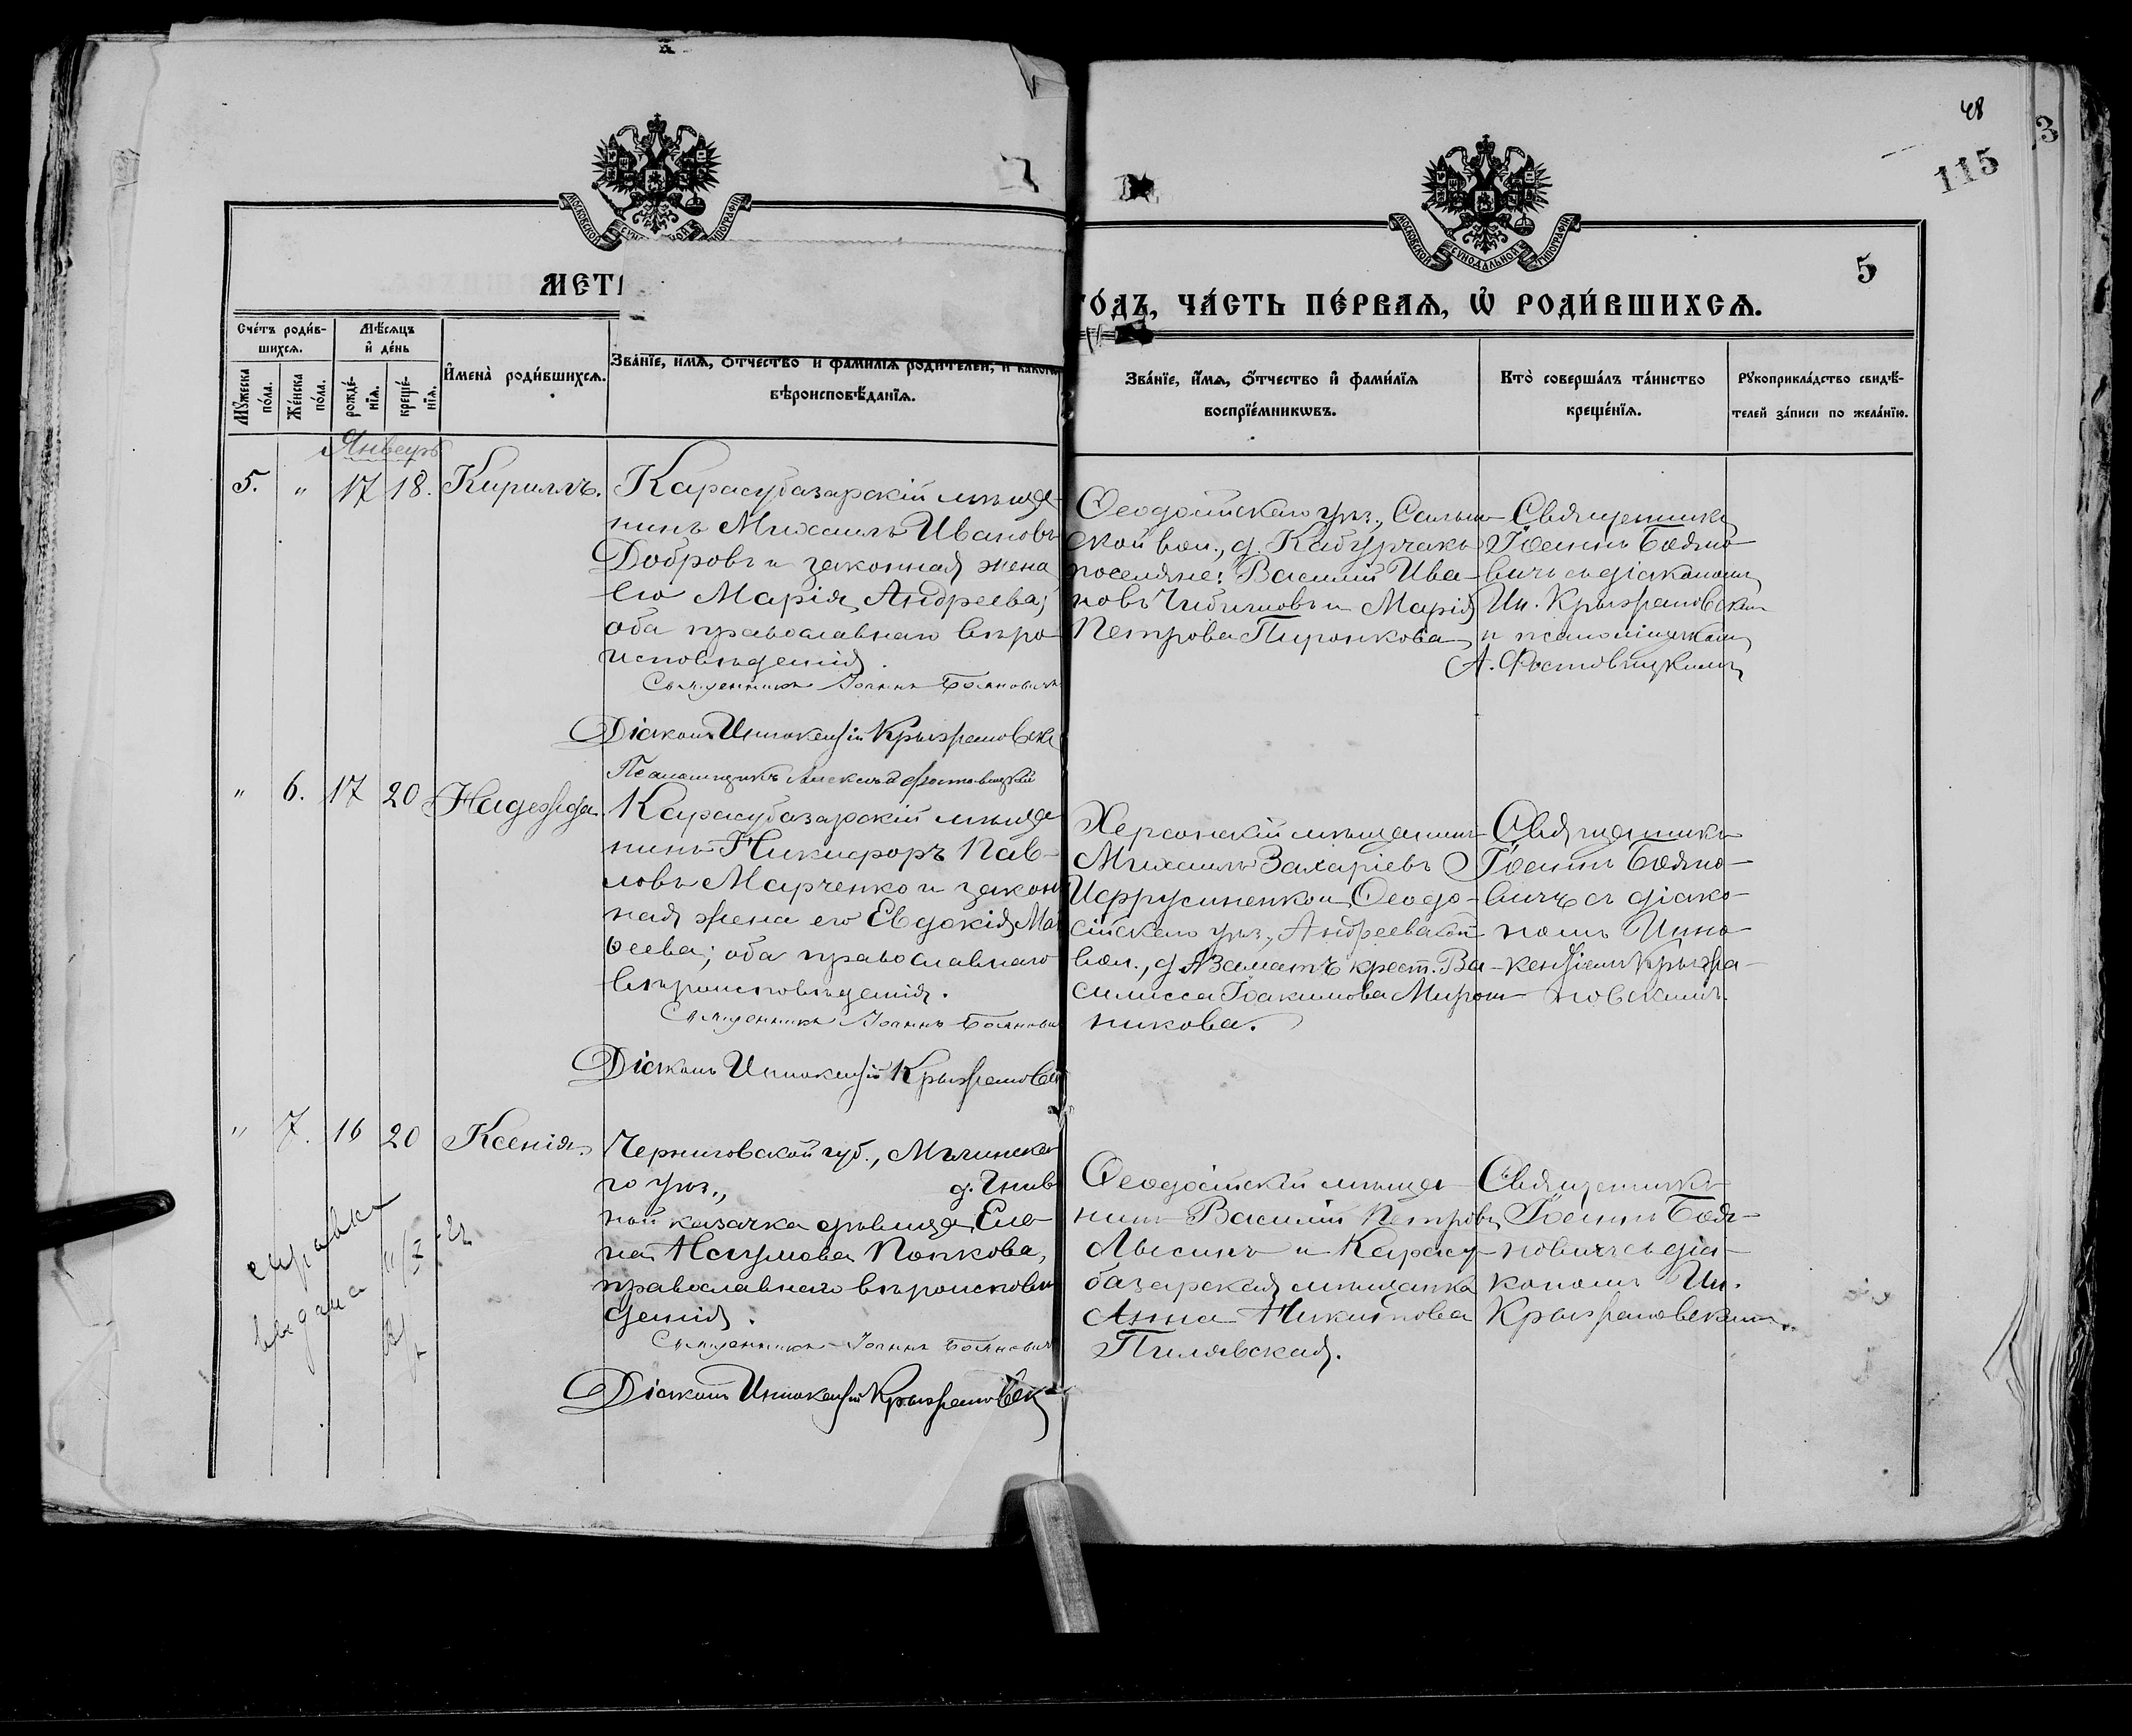 48
115
3
5
МОСКОВСКОЙ
МОСКОВСКОЙ СУНОДАЛЬНОЙ ТИПОГРАФІИ
МЕТ
ГО́ДЪ, ЧА́СТЬ ПЕ́РВАЯ, Ѡ҆ РОДИ́ВШИХСЯ.
Сче́тъ роди́в-
шихся.
Мѣ́сяцъ
и҆ де́нь
Му́жеска
по́ла.
Же́нска
по́ла.
рожде́-
нїя.
креще́-
нїя.
И҆мена̀ роди́вшихся.
Зва́нїе, и́мя, ѻ́тчество и фами́лїя родителей, и како́гѡ
вѣроисповѣ́данїя.
Зва́нїе, и́мя, ѻ́тчество и҆ фами́лїя
воспрїе́мникѡвъ.
Кто̀ соверша́лъ та́инство
креще́нїя.
Рукоприкла́дство свидѣ́-
телей за́писи по жела́нїю.
Январь
5. " 17 18. Кириллъ.
Карасубазарскій мѣща-
нинъ Михаилъ Ивановъ
Добровъ и законная жена
его Марія Андреева;
оба православнаго вѣро-
исповѣденія.
Священникъ Іоаннъ Бояновичъ
Діаконъ Иннокентій Крыжановск
Псаломщикъ Алексѣй Фостовицкій
Ѳеодосійскаго уѣз., Салын-
ской вол., д. Кабурчакъ
поселяне: Василій Ива-
новъ Чибишовъ и Марія
Петрова Пиронкова
Священникъ
Іоаннъ Бояно-
вичъ съ діакономъ
Ин. Крыжановскимъ
и псаломщикомъ
А. Фостовицкимъ
" 6. 17 20 Надежда.
Карасубазарскій мѣща
нинъ Никифоръ Пав-
ловъ Марченко и закон
ная жена его Евдокія Мат
ѳеева; оба православнаго
вѣроисповѣденія.
Священникъ Іоаннъ Боянови
Діаконъ Иннокентій Крыжановск
Херсонскій мѣщанинъ
Михаилъ Захаріевъ
Ѳеодо-
сійскаго уѣз., Андреевской
вол., д. Азаматъ крест. Ва-
силисса Іоакимова Мирош-
никова.
Священникъ
Іоаннъ Бояно-
вичъ съ діако-
номъ Инно-
кентіемъ Крыжа-
новскимъ.
" 7. 16 20 Ксенія.
Черниговской губ., Мглинска-
го уѣз., д. Гнив
ной казачка дѣвица Еле-
на Наумова Попкова,
православнаго вѣроисповѣ
денія.
Священникъ Іоаннъ Бояновичъ
Діаконъ Иннокентій Крыжановск
Ѳеодосійскій мѣща-
нинъ Василій Петровъ
Лысинъ и Карасу-
базарская мѣщанка
Анна Никитова
Пилявская.
Священникъ
Іоаннъ Боя-
новичъ съ діа-
кономъ Ин.
Крыжановскимъ.
справка
выдана